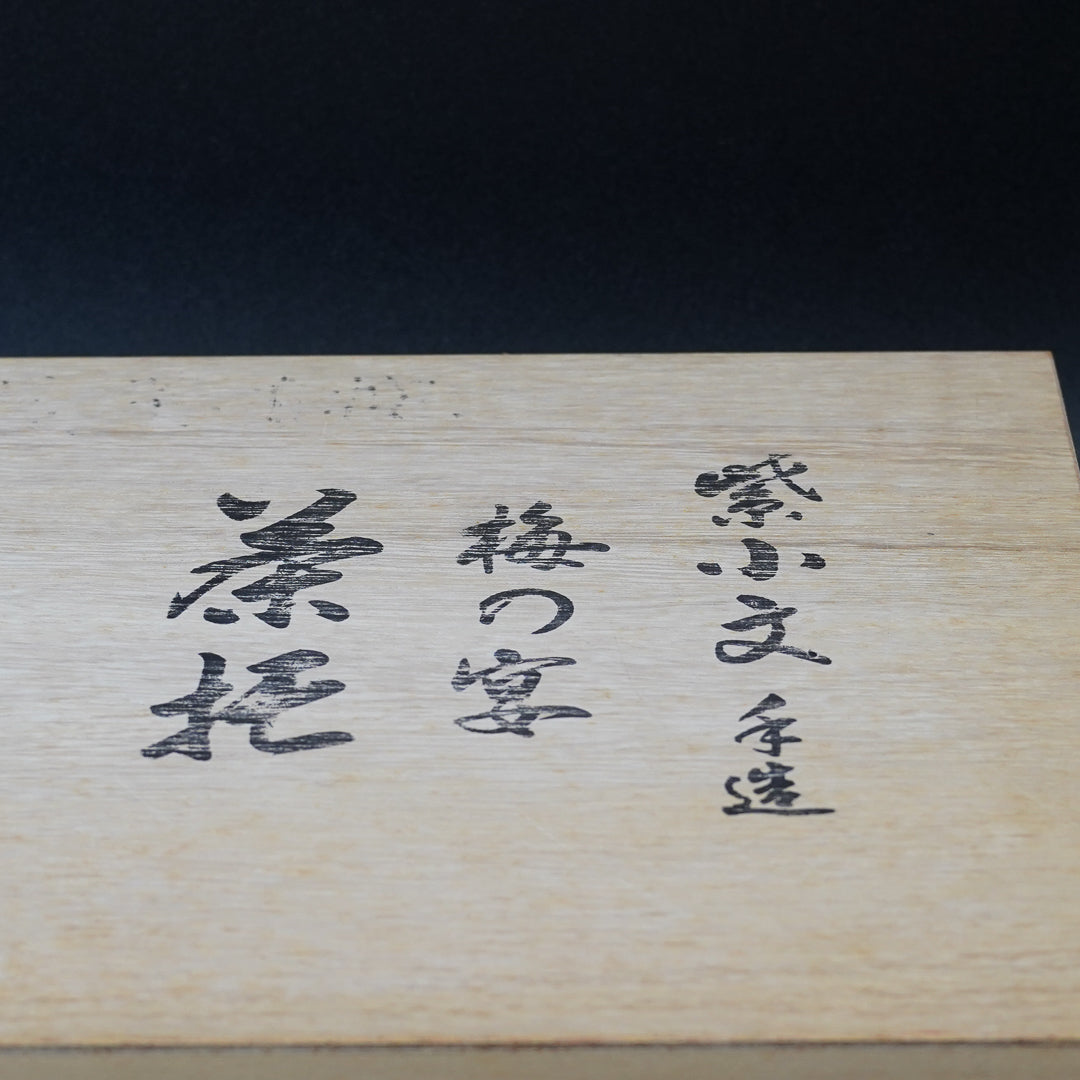 紫小文 手造
梅の宴
茶托